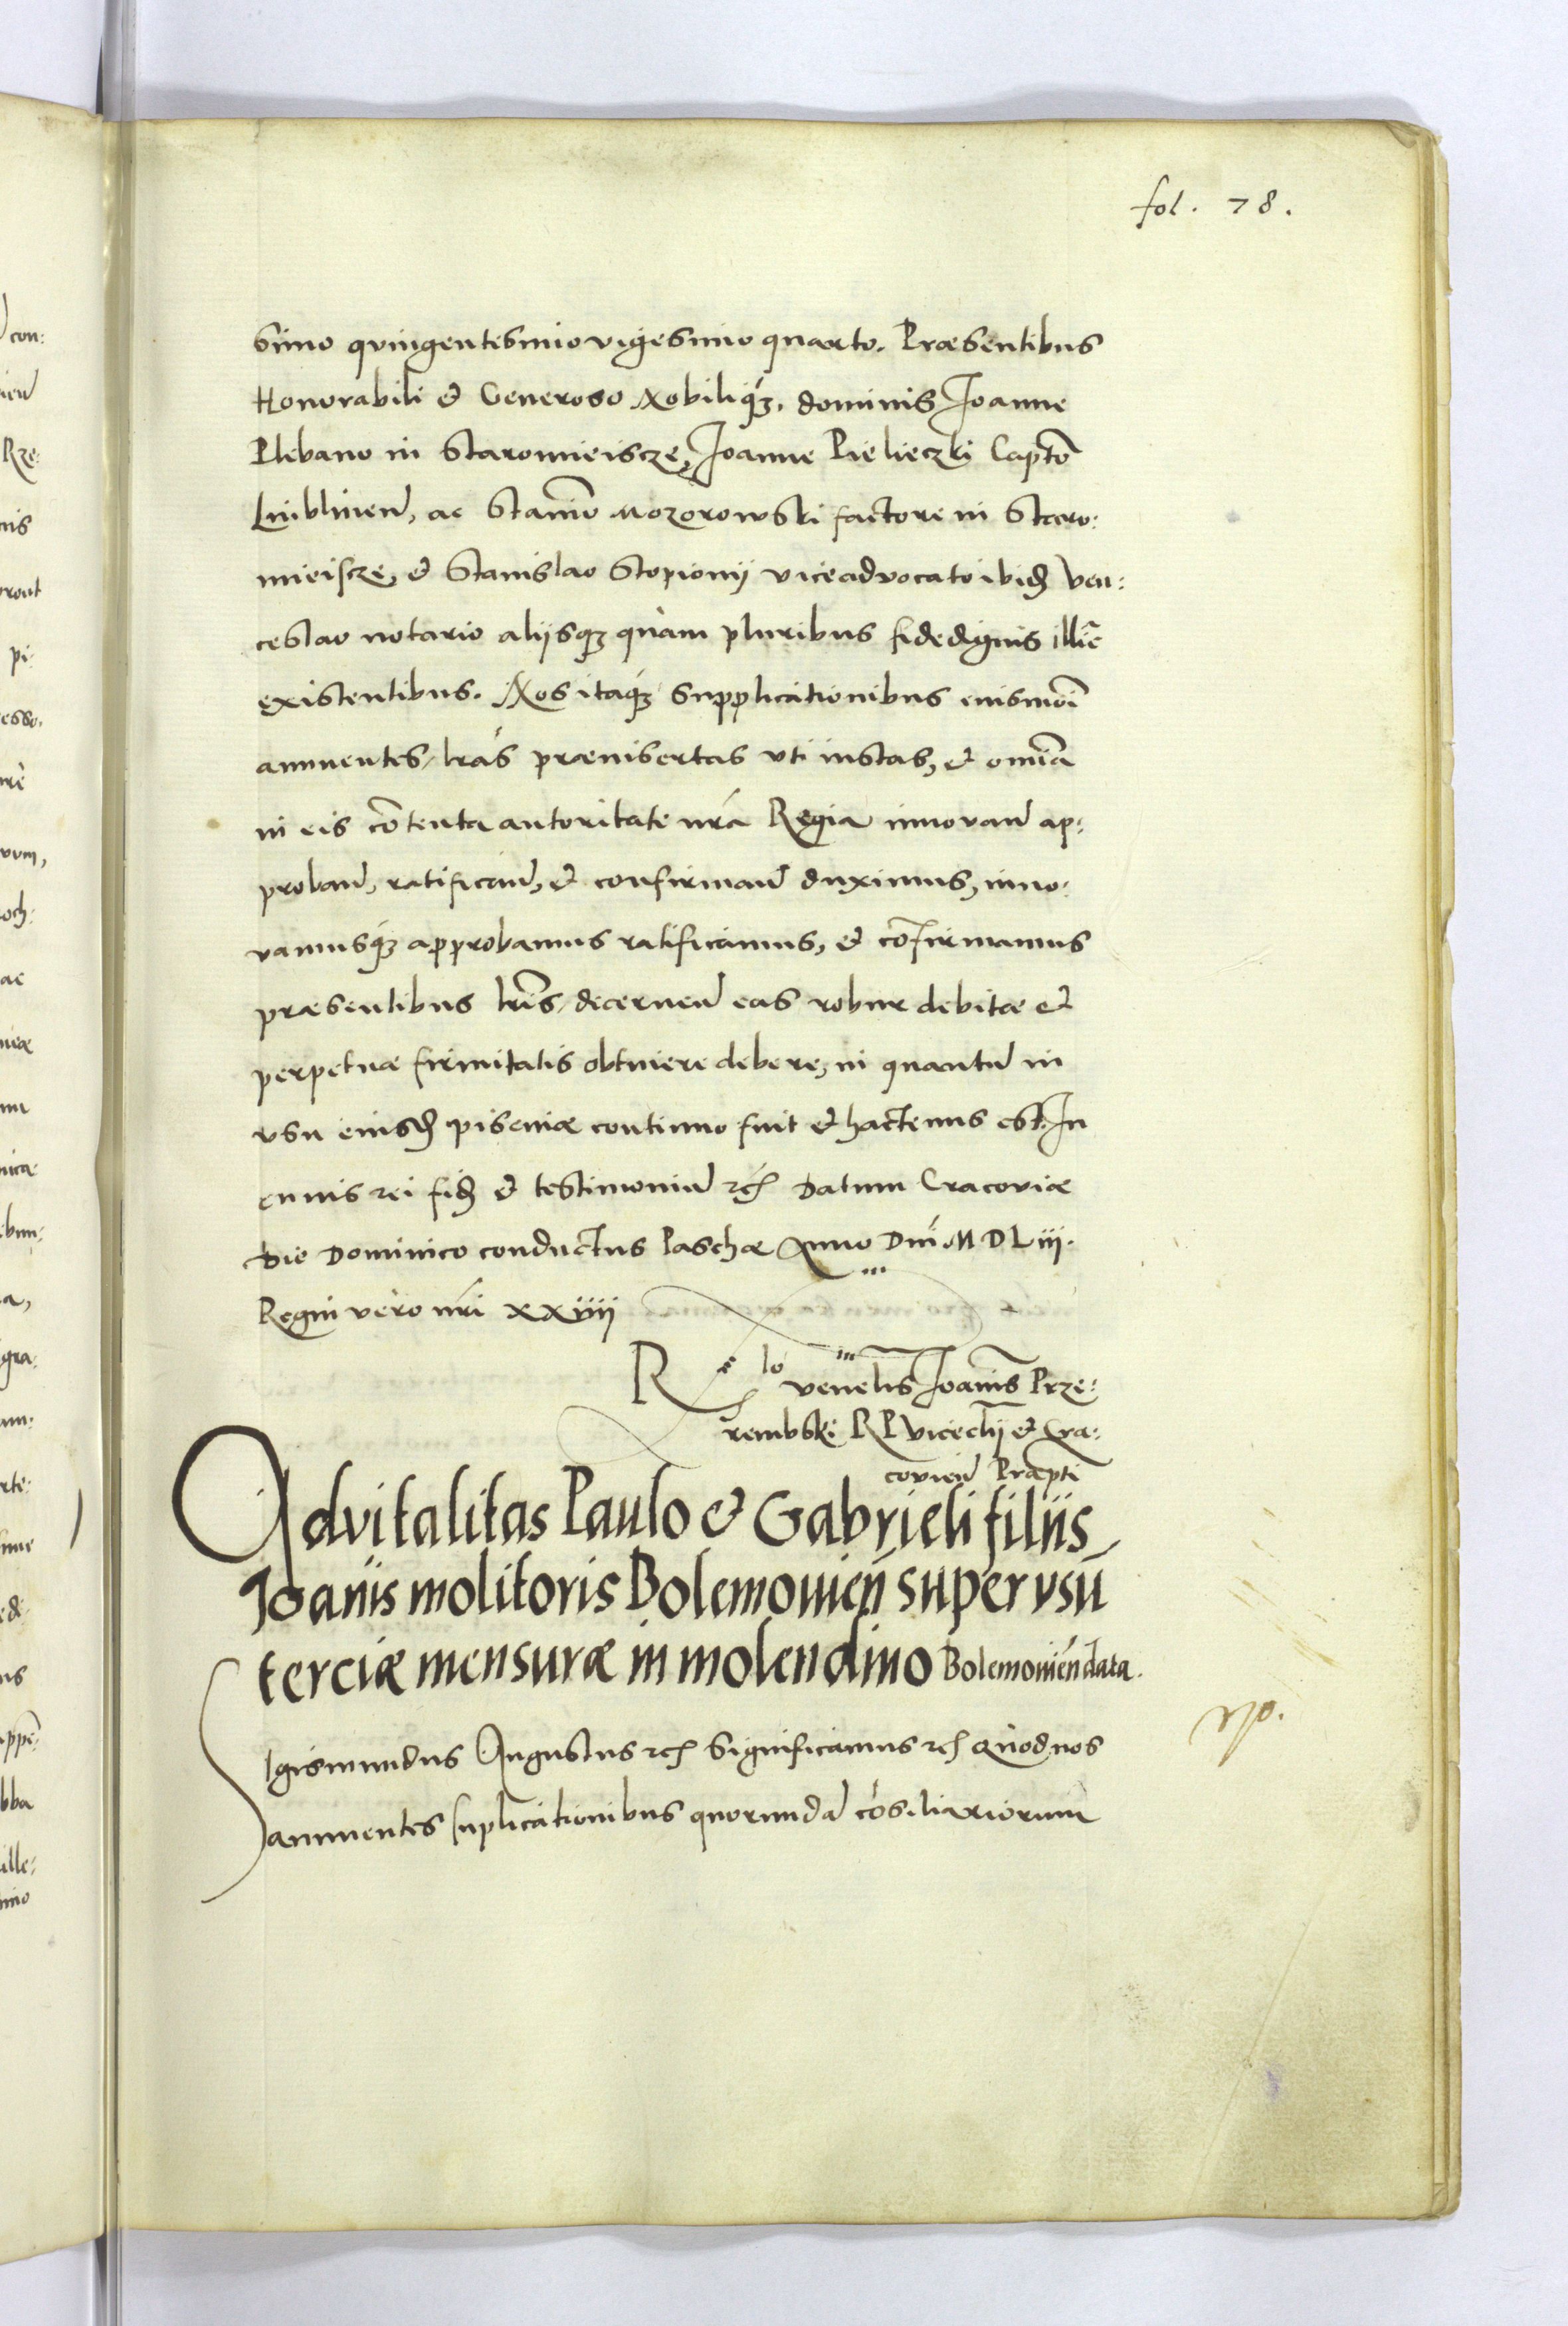 fol. 78.
simo quingentesimo vigesimo quarto. Præsentibus
Honorabili et Generoso Nobiliq3. dominis Joanne
Plebano in Staromieiscze, Joanne Pielieczki Capto
Lublinen, ac Stanio Mozorowski factore in Staro:
mieiscze, et Stanislao Stopionij viceadvocato ibid Ven:
ceslao notario alijsq3 quàm pluribus fidedignis illic
existentibus. Nos itaq3 supplicationibus eiusmoi
annuentes, lras præinsertas uti iustas, et omnia
in eis cotenta autoritate nra Regia innovand ap:
proband, ratificand, et confirmand duximus, inno:
vamusq3 approbamus ratificamus, et cofirmamus
præsentibus lris, decernend eas robur debitæ et
perpetuæ firmitatis obtinere debere, in quantu in
usu eiusd pisciniæ continuo fuit et hactenus est. In
cuius rei fid et testimoniu etc Datum Cracoviæ
die Dominico conductus Paschæ Anno Dni M D Liii.
Regni vero nri xxiiii
Rlo venelis Joanis Prze:
rembski R P Vicecclij et Cra:
covien Præpti
Advitalitas Paulo et Gabrieli filiis
Joanis molitoris Bolemovien super usu
terciæ mensuræ in molendino Bolemovien data.
Sigismundus Augustus etc Significamus etc Quod nos
annuentes suplicationibus quorunda cosiliariorum